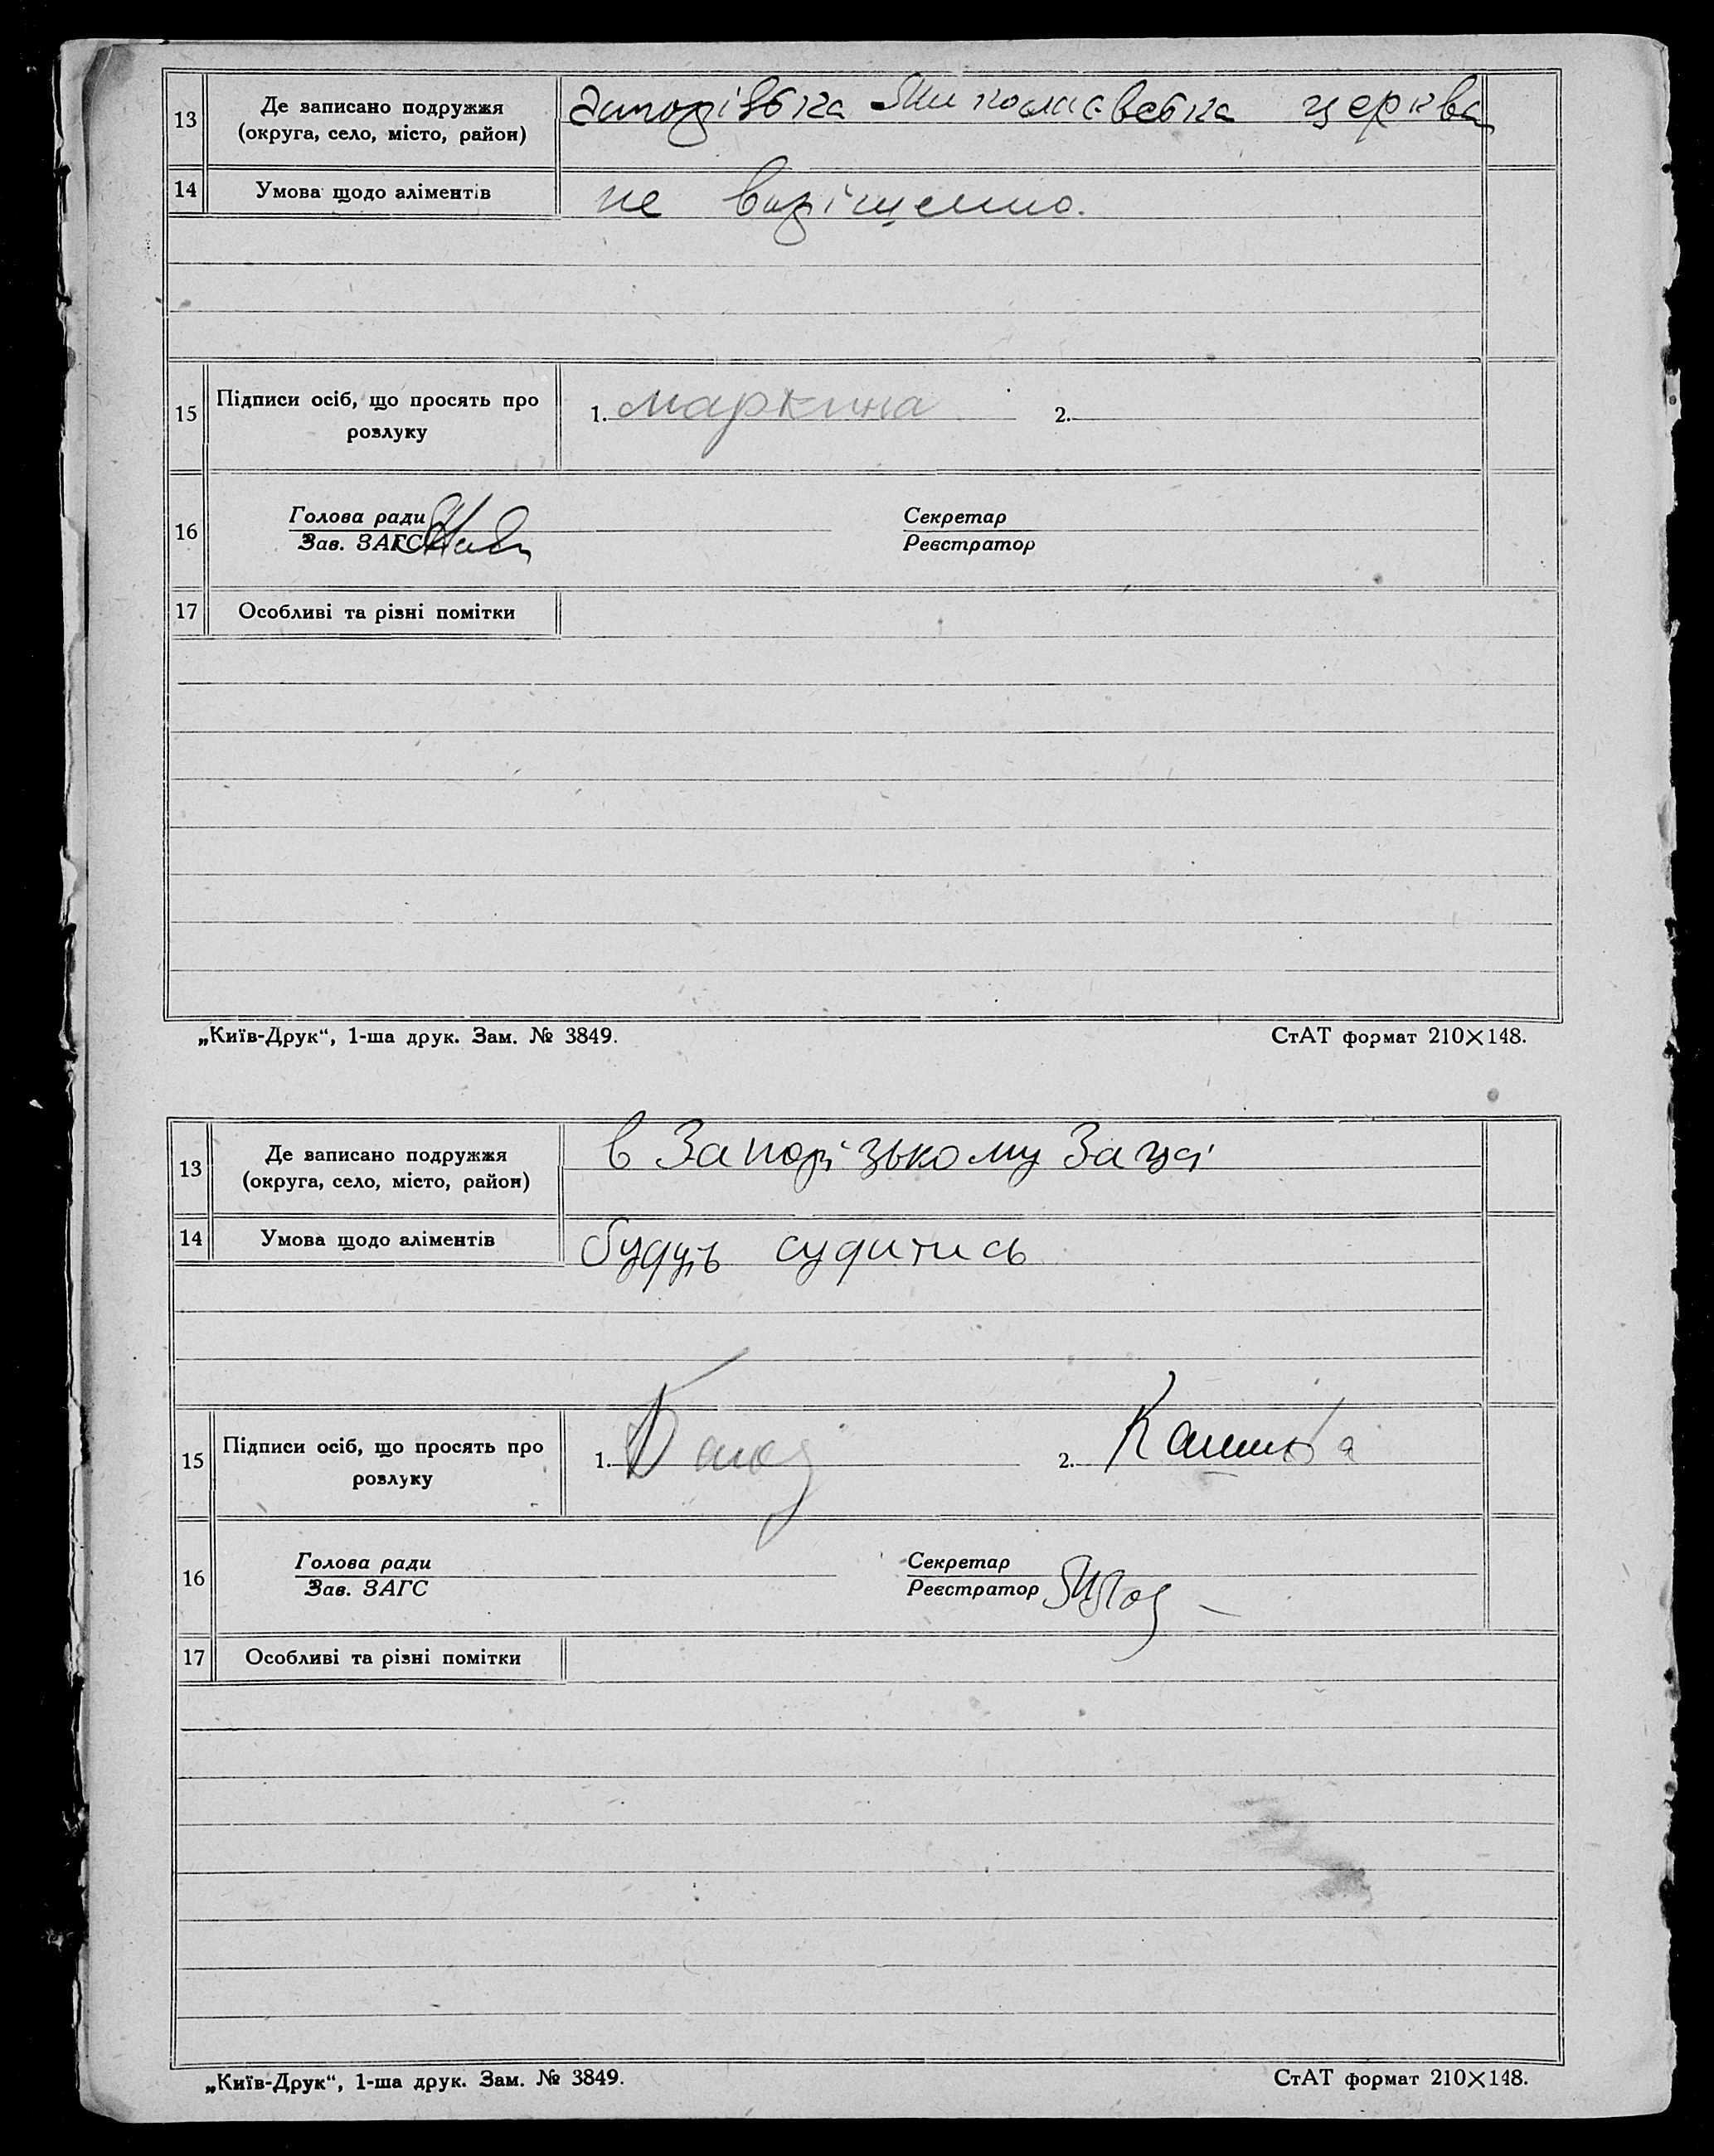 13 Де записано подружжя
(округа, село, місто, район) Миколаєвська церква
14 Умова щодо аліментів не вирішенно.
15 Підписи осіб, що просять про
розлуку 1. Маркина 2.
16 Голова ради Секретар
Зав. ЗАГС Реєстратор
17 Особливі та різні помітки
„Київ-Друк“, 1-ша друк. Зам. № 3849. СтАТ формат 210×148.
13 Де записано подружжя
(округа, село, місто, район) в Запорізькому Загсі
14 Умова щодо аліментів будуть судитись
15 Підписи осіб, що просять про
розлуку 1. 2.
16 Голова ради Секретар
Зав. ЗАГС Реєстратор
17 Особливі та різні помітки
„Київ-Друк“, 1-ша друк. Зам. № 3849. СтАТ формат 210×148.